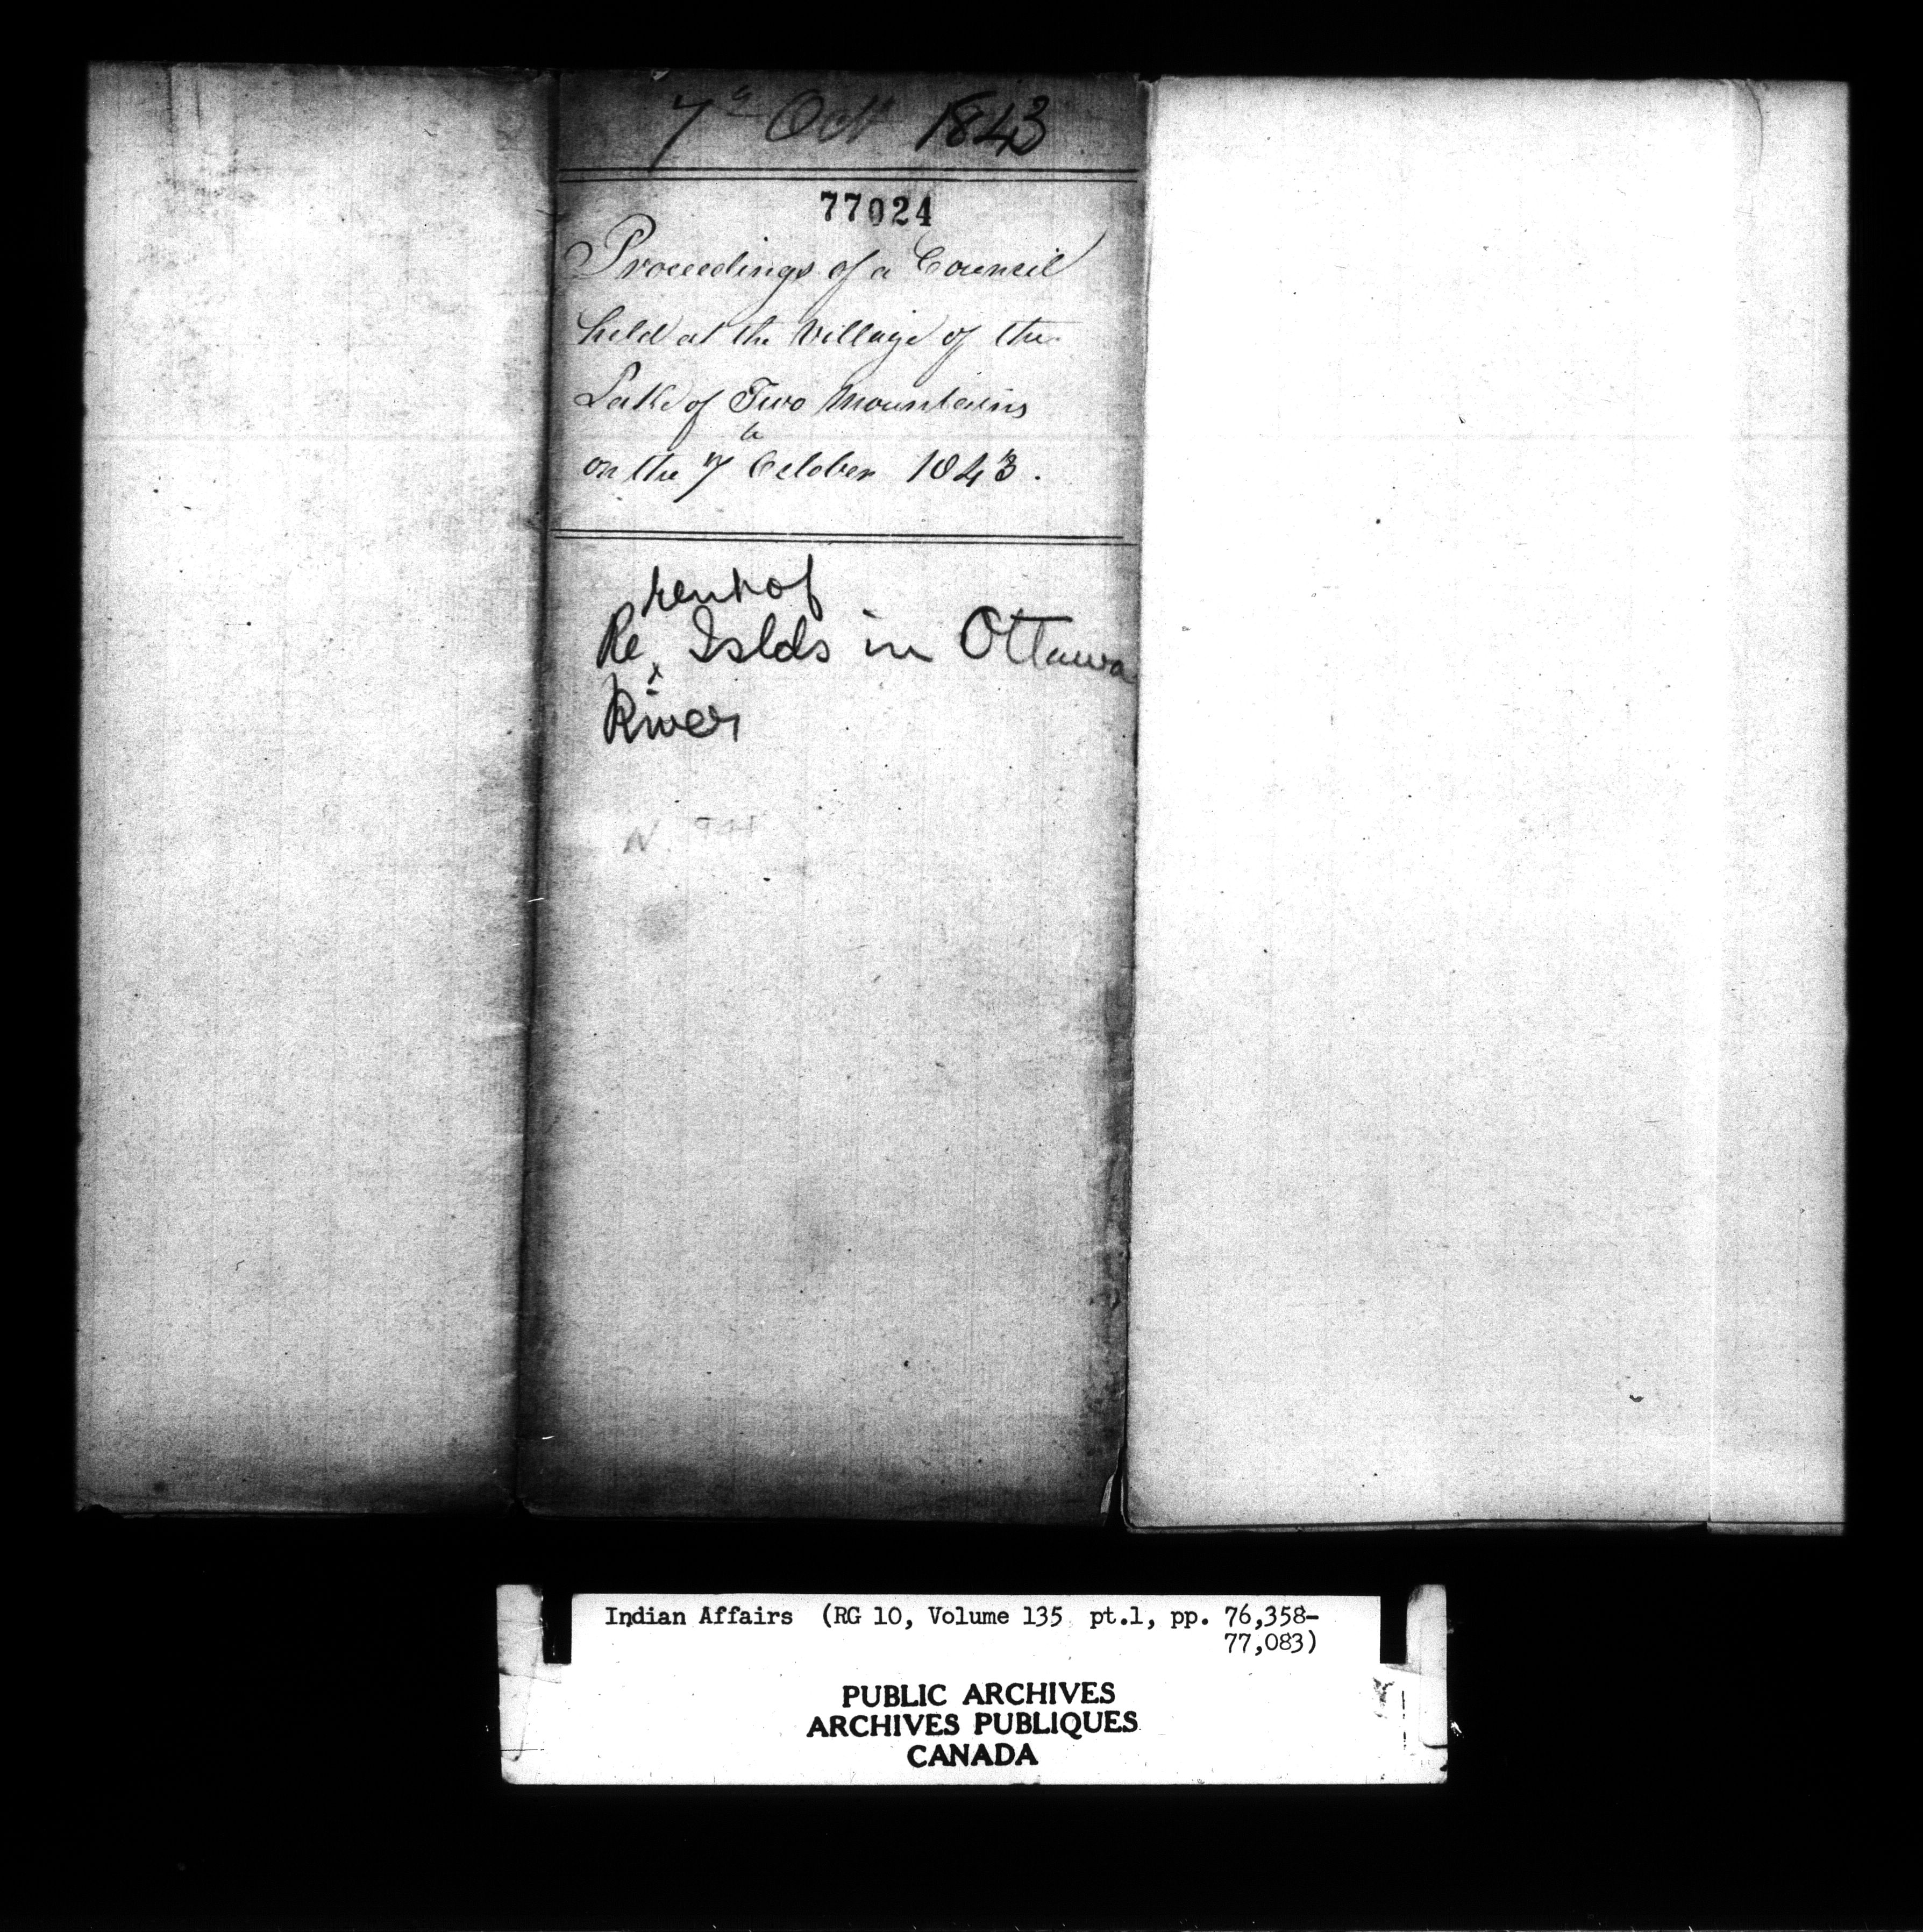 7th Octr 1843
77024
Proceedings of a Council
held at the Village of the
Lake of Two Mountains
on the 7th October 1843.
rent of
Re ^ Islds in Ottawa
River
Indian Affairs (RG 10, Volume 135 pt.1, pp. 76,358-
77,083)
PUBLIC ARCHIVES
ARCHIVES PUBLIQUES
CANADA